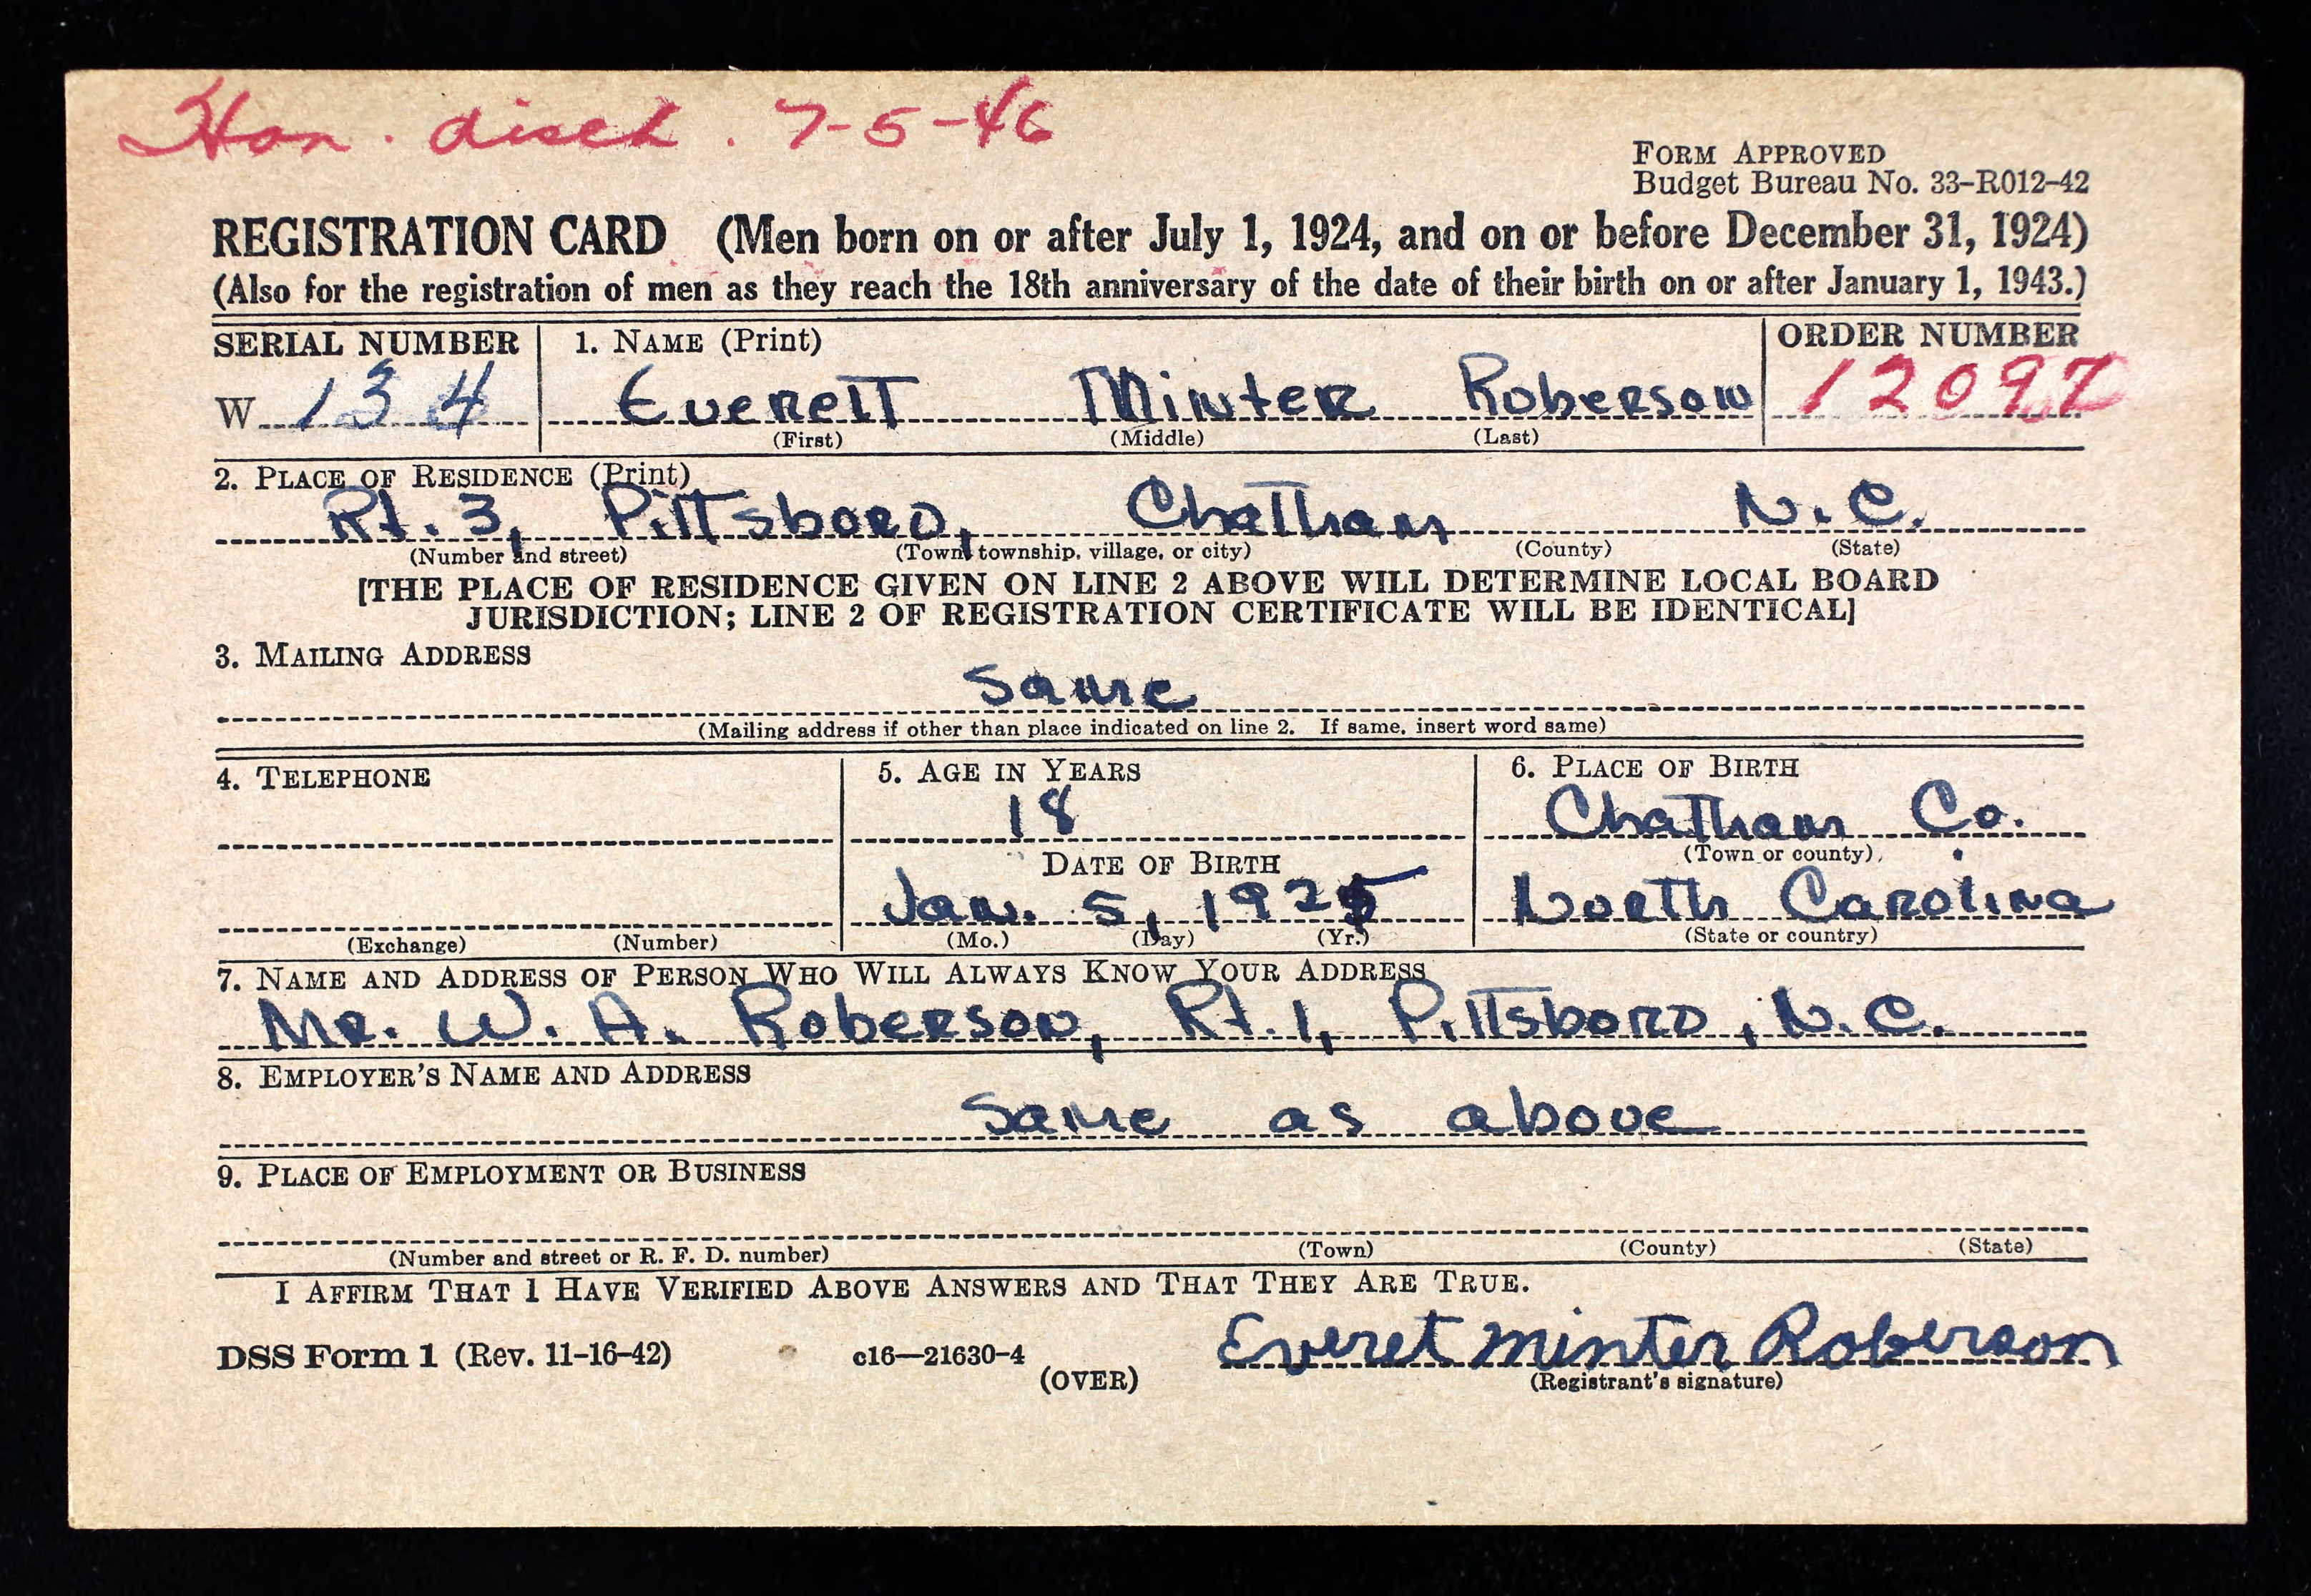 Hon. disch. 7-5-46
FORM APPROVED
Budget Bureau No. 33-R012-42
REGISTRATION CARD (Men born on or after July 1, 1924, and on or before December 31, 1924)
(Also for the registration of men as they reach the 18th anniversary of the date of their birth on or after January 1, 1943.)
SERIAL NUMBER 1. NAME (Print) ORDER NUMBER
W 134 Everett Minter Roberson 12097
(First) (Middle) (Last)
2. PLACE OF RESIDENCE (Print)
Rt. 3, Pittsboro, Chatham N.C.
(Number and street) (Town, township, village, or city) (County) (State)
[THE PLACE OF RESIDENCE GIVEN ON LINE 2 ABOVE WILL DETERMINE LOCAL BOARD
JURISDICTION; LINE 2 OF REGISTRATION CERTIFICATE WILL BE IDENTICAL]
3. MAILING ADDRESS
Same
(Mailing address if other than place indicated on line 2. If same, insert word same)
4. TELEPHONE 5. AGE IN YEARS 6. PLACE OF BIRTH
18 Chatham Co.
DATE OF BIRTH (Town or county)
Jan. 5, 1925 North Carolina
(Exchange) (Number) (Mo.) (Day) (Yr.) (State or country)
7. NAME AND ADDRESS OF PERSON WHO WILL ALWAYS KNOW YOUR ADDRESS
Mr. W. A. Roberson, Rt. 1, Pittsboro, N.C.
8. EMPLOYER'S NAME AND ADDRESS
Same as above
9. PLACE OF EMPLOYMENT OR BUSINESS
(Number and street or R. F. D. number) (Town) (County) (State)
I AFFIRM THAT I HAVE VERIFIED ABOVE ANSWERS AND THAT THEY ARE TRUE.
DSS Form 1 (Rev. 11-16-42) c16—21630-4 Everet Minter Roberson
(OVER) (Registrant's signature)